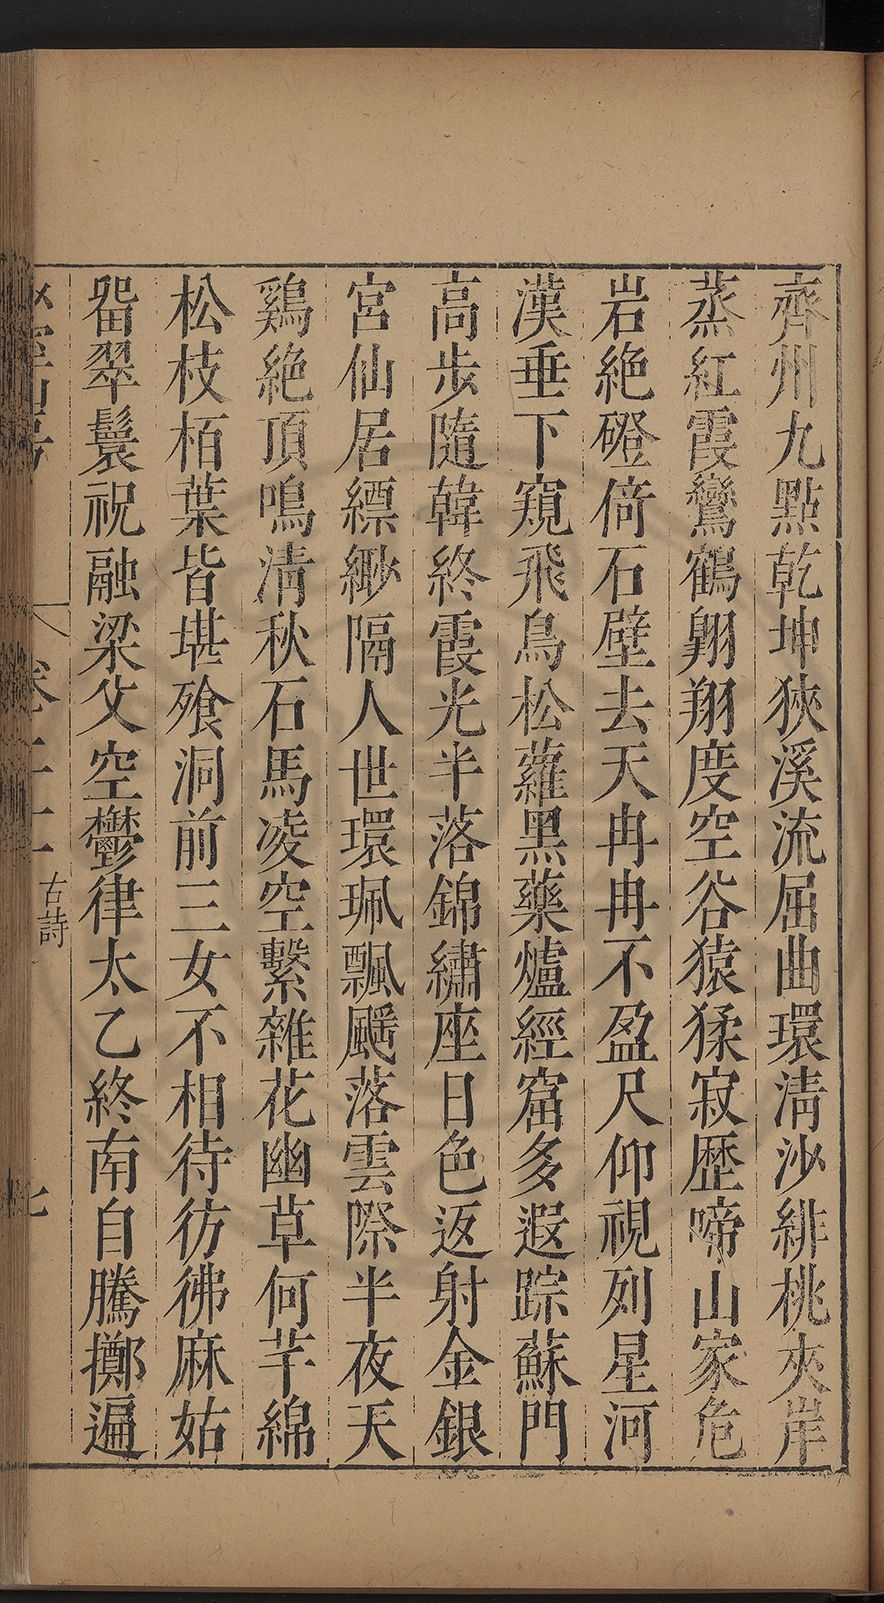 齊州九點乾坤狹溪流屈曲環清沙緋桃夾岸
蒸紅霞鸞鶴翺翔度空谷猿猱寂歷啼山家危
岩絶磴倚石壁去天冉冉不盈尺仰視列星河
漢垂下窺飛鳥松蘿黑藥爐經窟多遐踪蘇門
高步隨韓終霞光半落錦繡座日色返射金銀
宮仙居縹緲隔人世環珮飄颻落雲際半夜天
鷄絶頂鳴清秋石馬凌空繫雜花幽草何芊綿
松枝栢葉皆堪飱洞前三女不相待彷彿麻姑
留翠鬟祝融梁父空鬱律太乙終南自騰擲遍
卷二十
古詩
七